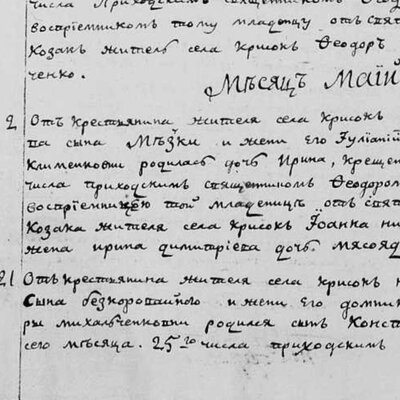 числа приходскимъ священникомъ Ѳеод
воспрїемникомъ тому младенцу отъ свят
Козакъ житель села крисокъ Ѳеодоръ
ченко.
Мѣсяцъ Маій
2 Отъ крестьянина жителя села крисокъ
па сына Мѣзки и жени его Іуліаній
Клименковни родилась дочъ Ирина, крещен
числа приходскимъ священникомъ Ѳеодором
воспрїемницею той младеницѣ отъ свят
Козака жителя села крисокъ Іоанна ни
жена ирина димитріева дочъ мясояд
21 Отъ крестьянина жителя села крисокъ н
Сына безкоровайного и жени его домни
ры михальченковни родился сынъ Конст
сего мѣсяца. 25го числа приходскимъ